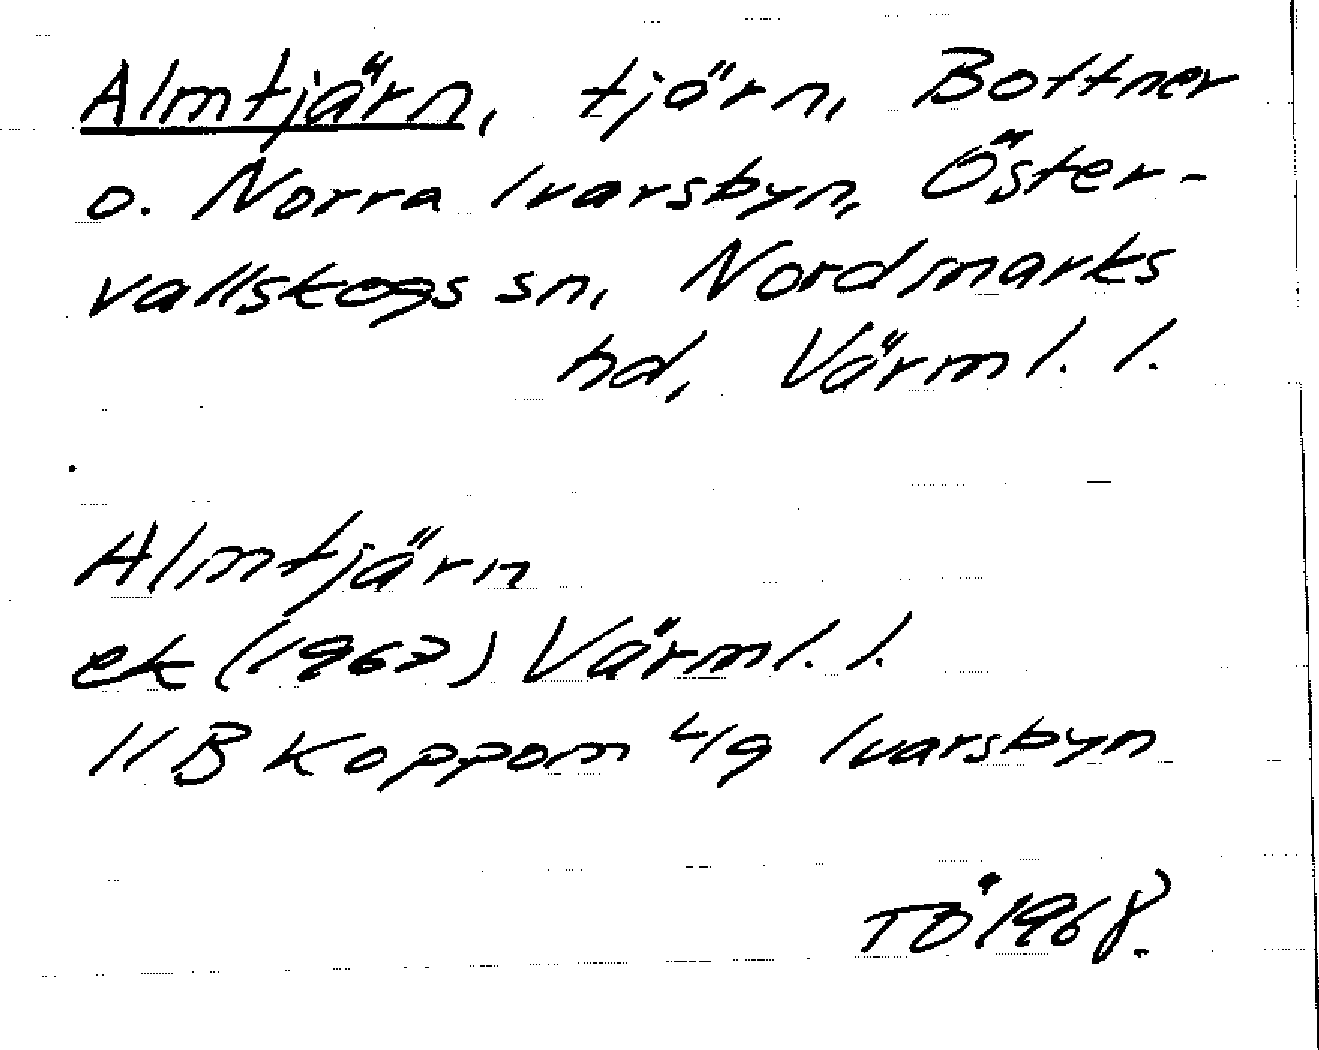 Almtjärn, tjärn, Bottner
o. Norra Ivarsbyn, Öster-
vallskogs sn, Nordmarks
hd, Värml. l.
Almtjärn
ek (1967) Värml. l.
11B Koppom 4/g Ivarsbyn
TÖ 1968.